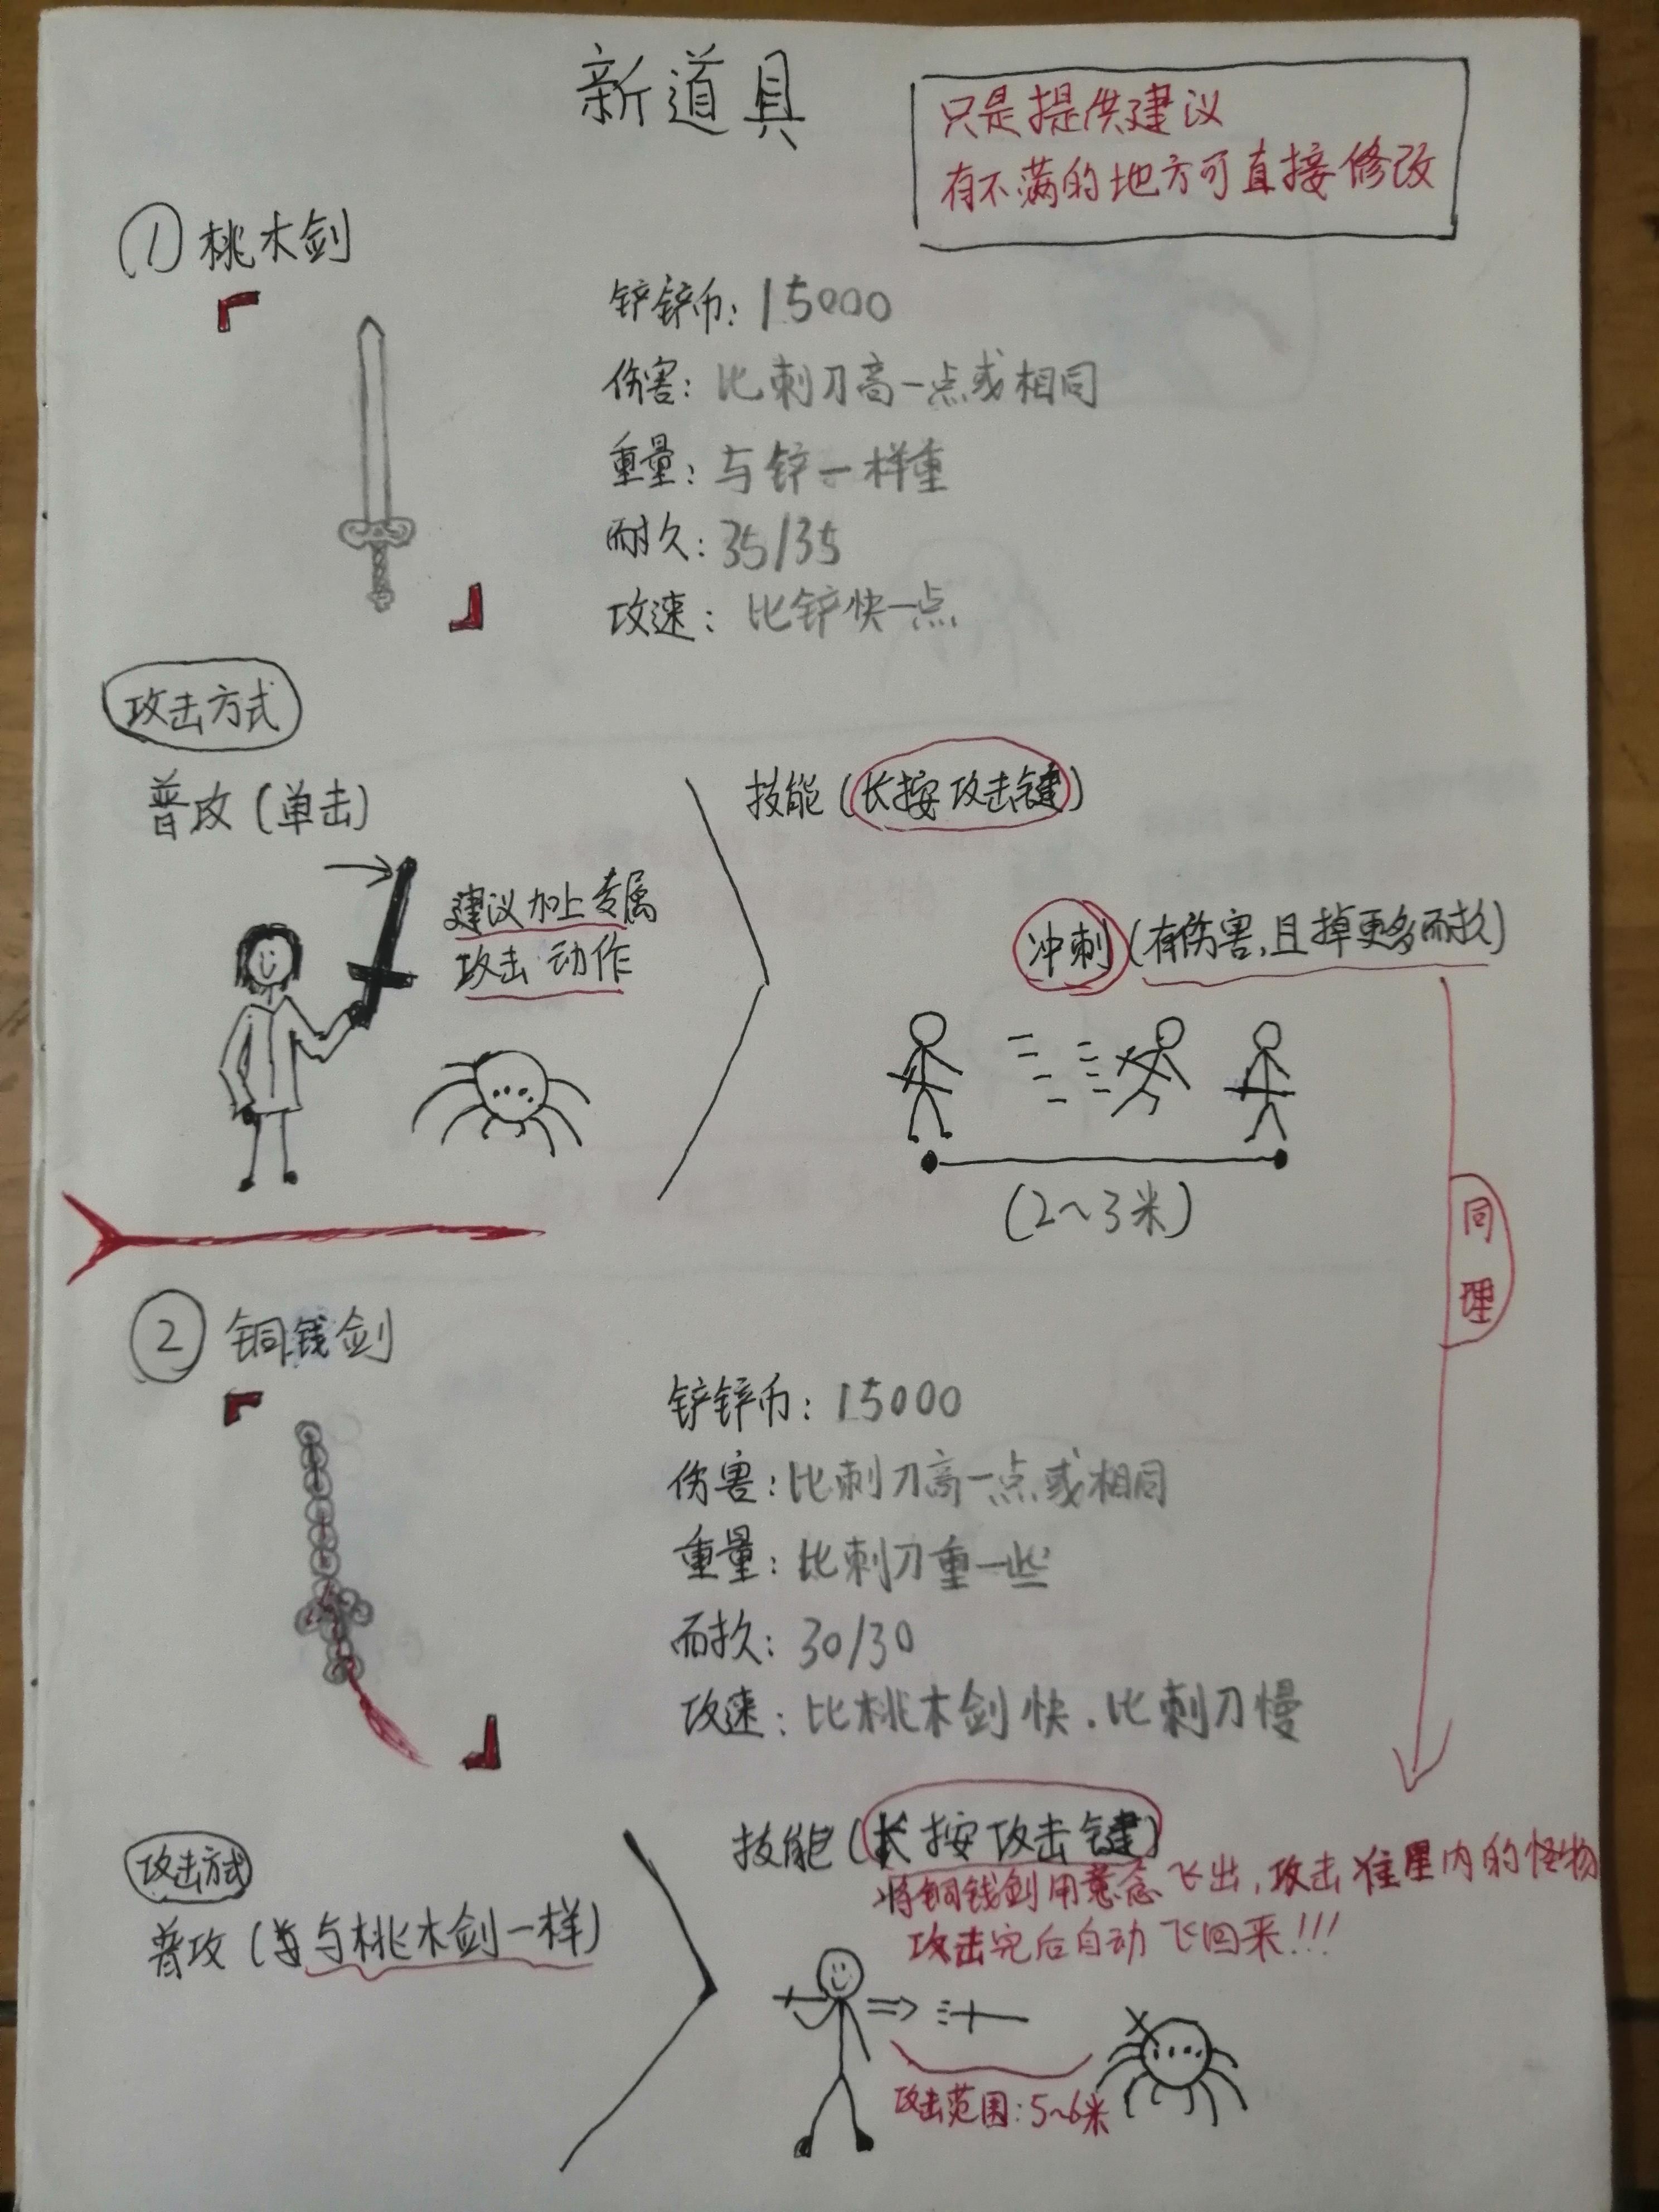 新道具
只是提供建议
有不满的地方可直接修改
① 桃木剑
铲锌币：15000
伤害：比刺刀高一点或相同
重量：与锌一样重
耐久：35/35
攻速：比铲快一点
攻击方式
普攻（单击）
建议加上专属
攻击动作
技能（长按攻击键）
冲刺（有伤害，且掉更多耐久）
（2～3米）
同理
② 铜钱剑
铲锌币：15000
伤害：比刺刀高一点或相同
重量：比刺刀重一些
耐久：30/30
攻速：比桃木剑快．比刺刀慢
攻击方式
普攻（与桃木剑一样）
技能（长按攻击键）
将铜钱剑用意念飞出，攻击准星内的怪物
攻击完后自动飞回来！！！
攻击范围：5～6米